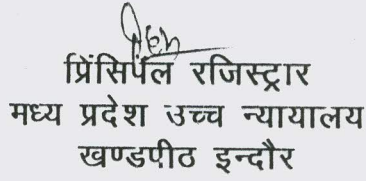 प्रिंसिपल रजिस्ट्रार
मध्य प्रदेश उच्च न्यायालय
खण्डपीठ इन्दौर